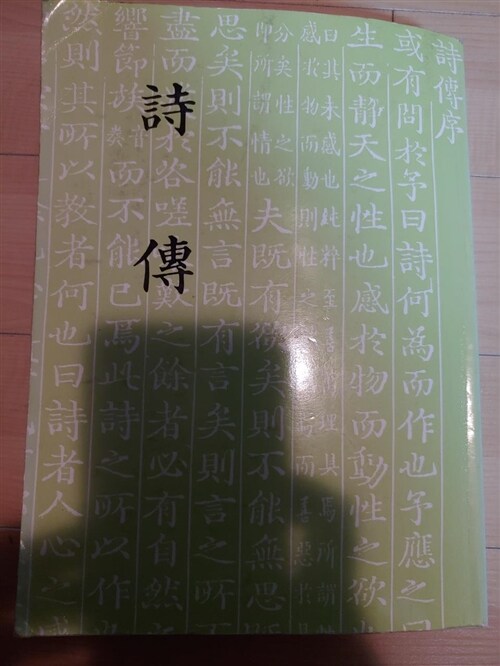 詩傳
詩傳序
或有問於予曰詩何為而作也予應之曰
生而靜天之性也感於物而動性之欲也
曰其未感也純粹至善理具焉所謂
感於物而動則性之而善惡於
分矣性之欲
即所謂情也
夫既有欲矣則不能無思
思矣則不能無言既有言矣則言之
盡而於咨嗟歎之餘者必有自然
響節族
而不能已焉此詩之所以作
然則其所以教者何也曰詩者人心之